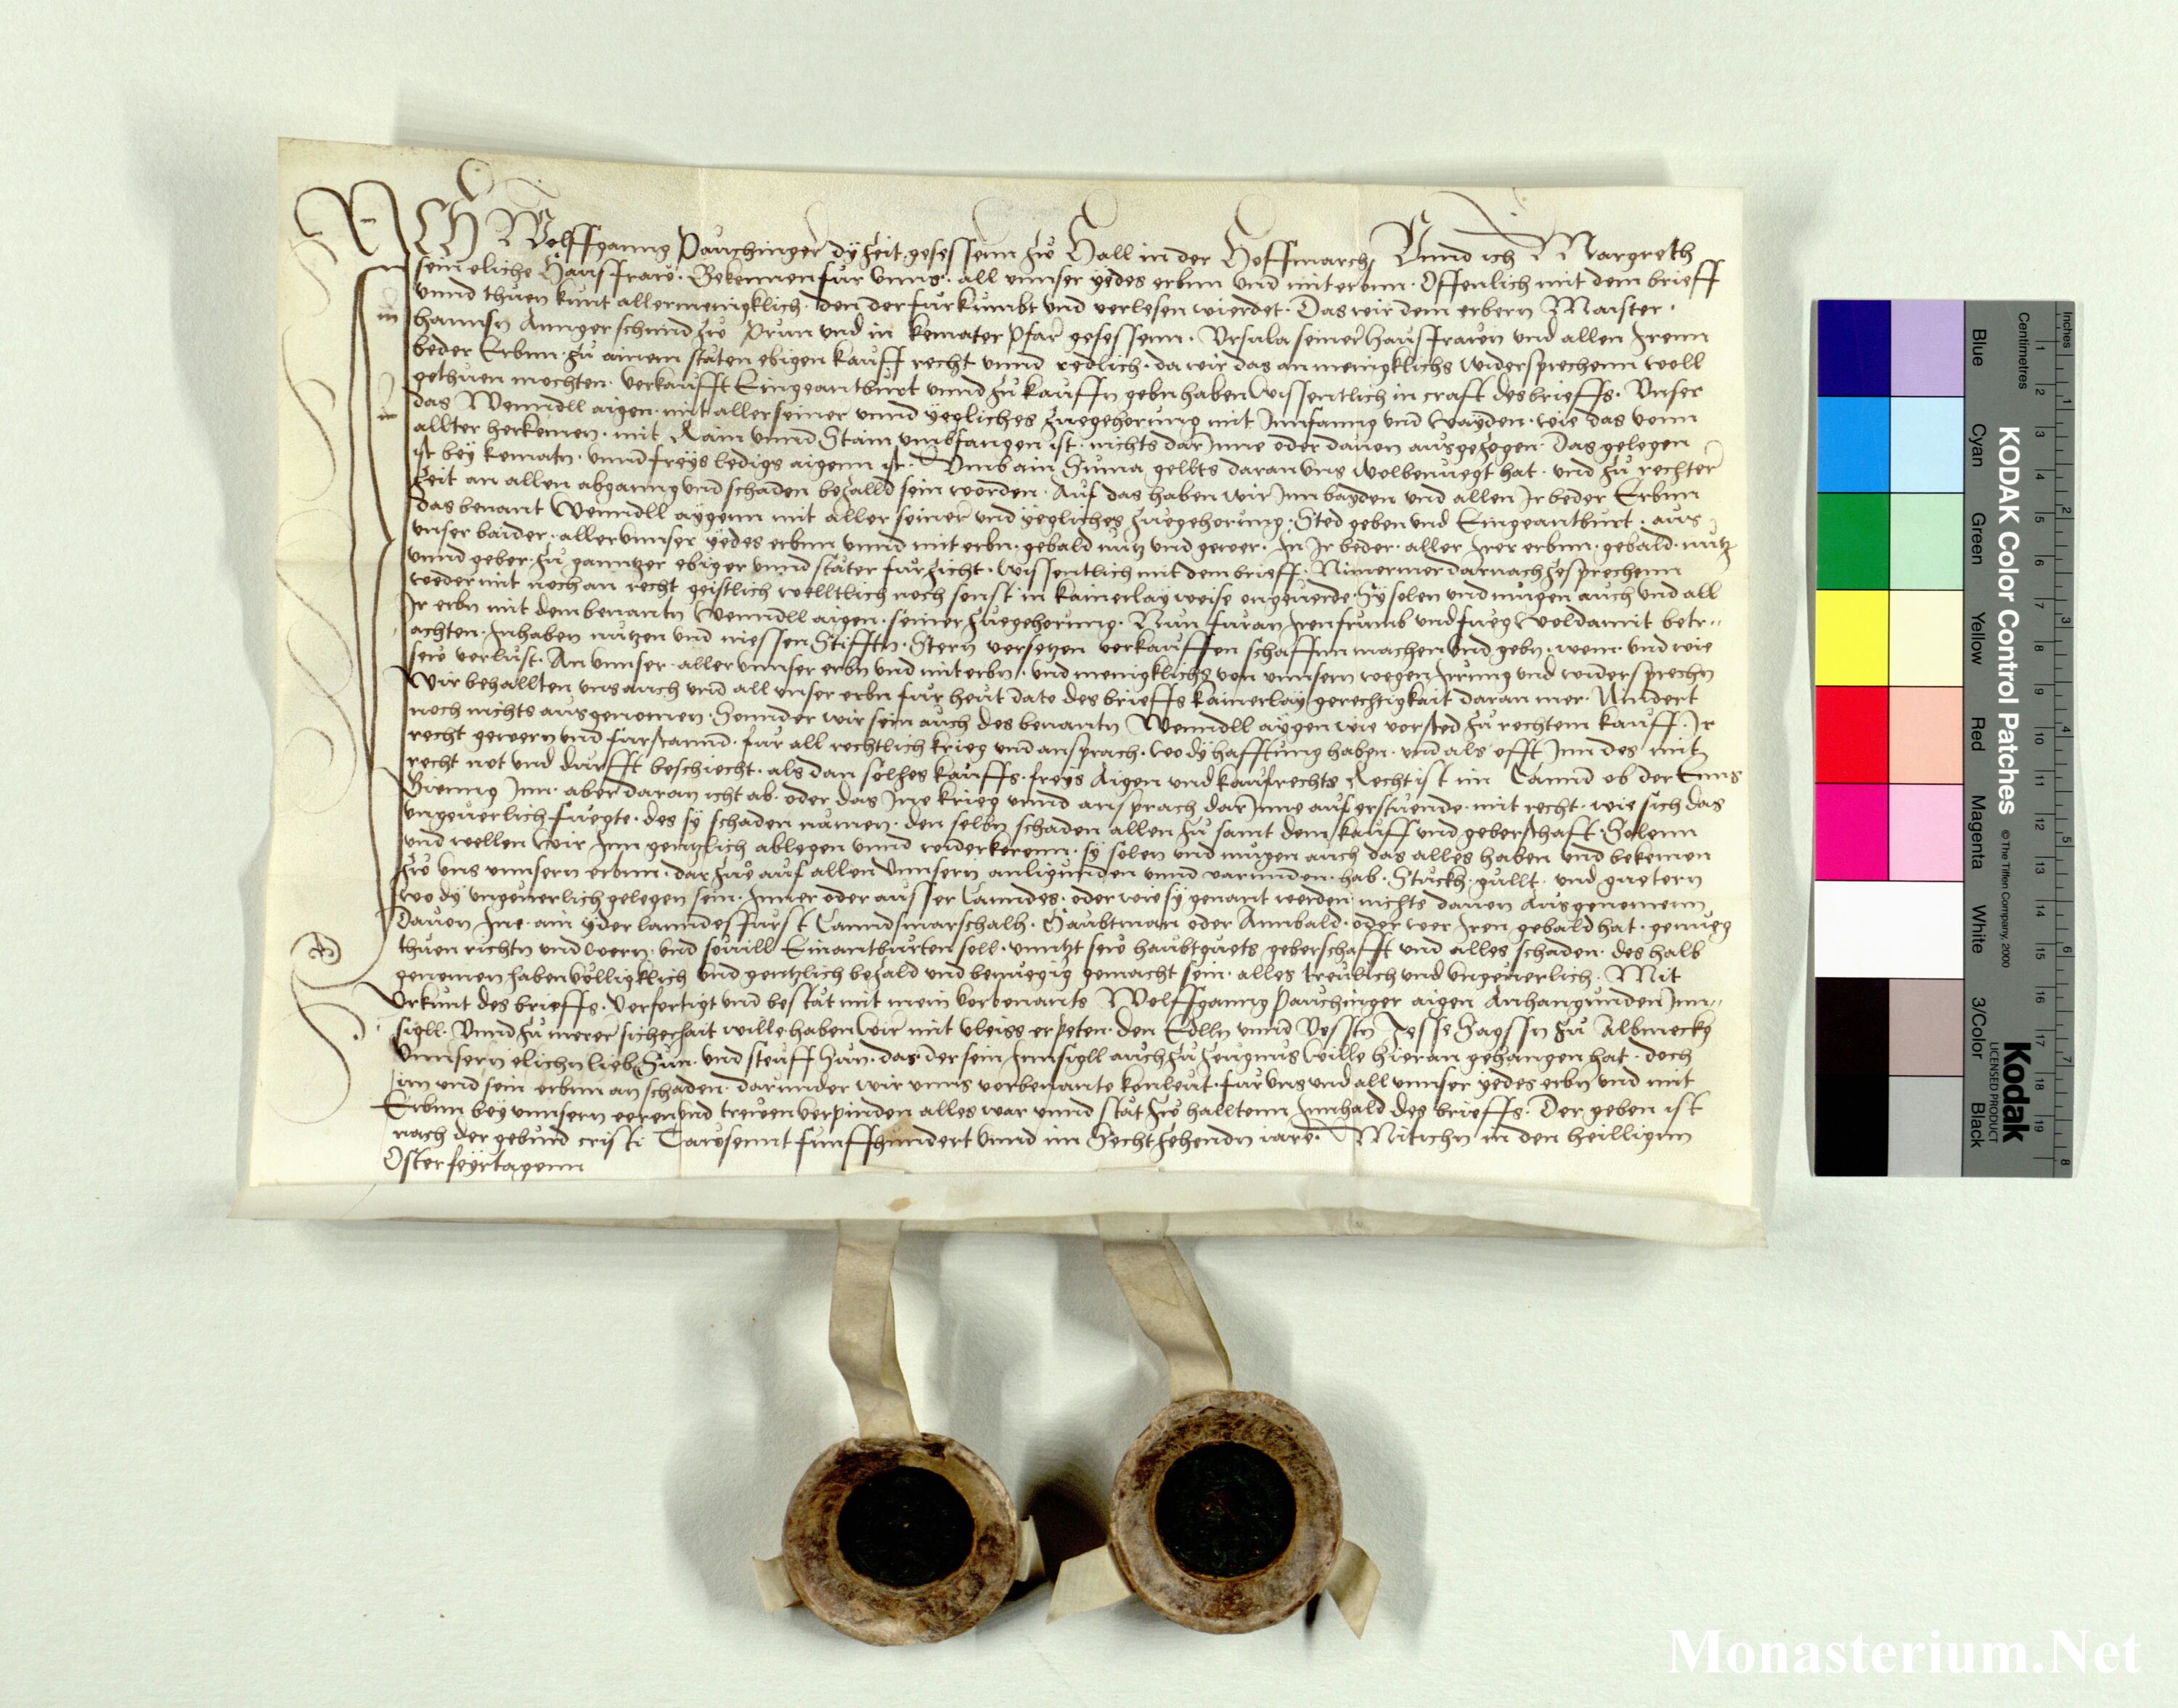 ICH Wolffganng Paurchinger dÿ zeit gesessenn zw Hall in der Hoffmarch Vnnd ich Margreth
sein eliche Hausfrawe. Bekennen fur vnns. all vnnser yedes erbnn vnd miterbnn. Offenlich mit dem brieff
vnnd thuen kunt allermenigklich. den der furkumbt vnd verlesen wierdet. Das wir dem erbern Maister.
hannsn Annger schmid zw Prun vnd in kemater Pfar gesessenn. Vrsula seiner hausfrawen vnd allen Irenn
beder Erbnn. zu ainem stäten ebigen kauff recht vnnd redlich. da wir das an menigklichs widersprechenn woll
gethuen mochten. verkaufft Eingeantburt vnnd zu kauffn gebn haben wissentlich in craft des brieffs. Vnser
das Wenndll aigen. mit aller seiner vnnd yegliches zuegehorung mit Innfanng vnd wayden. wie das vonn
allter herkemen. mit Rain vnnd Stain vmbfangen ist. nichts dar Inne oder dauon ausgezogen. Das gelegen
ist beÿ kematn. vnnd freÿs ledigs aigenn ist. Vmb ain Suma gellts daran vns wolbenuegt hat. vnd zu rechter
zeit an allen abganng vnd schaden bezalld sein worden. Auf das haben wir Inn bayden vnd allen Ir beder Erbnn
das benant Wenndll aygenn mit aller seiner vnd yegliches zuegehorung. Sted geben vnd Eingeantburt. aus
vnser baider. aller vnnser yedes erbnn vnnd miterbn. gebald nutz vnd gewer. In Ir beder. aller Irer erbnn. gebald. nutz
vnnd geber. zu ganntzer ebiger vnnd stäter furzicht. wissentlich mit dem brieff. Nimermer darnach zesprechenn
weder mit noch an recht geistlich welltlich noch sonst in kainerlay weise ongeuerde. Sÿ solen vnd mugen auch vnd all
Ir erbn mit dem benantn Wenndll aigen. seiner zuegehorung. Nun furan Iren frumb vnd fueg Woldamit betr-
achten. Inhaben nutzen vnd niessen Stifftn. Stern versetzen verkauffen schaffnn machen vnd gebn. wem. vnd wie
sew verlust. An vnnser. aller vnnser erbn vnd miterbn. vnd menigklichs von vnnsern wegen Irrung vnd widersprechn
Wir behallten vns auch vnd all vnser erbn fur heut dato des brieffs kainerlay gerechtigkait daran mer. Nindert
noch nichts ausgenomen. Sonnder wir sein auch des benantn Wenndll aygen wie versted zu rechtem kauff. Ir
recht gewern vnd furstannd. fur all rechtlich krieg vnd ansprach. wo dÿ hafftung haben. vnd als offt Inn des mit
recht not vnd durfft beschiecht. als dan solhes kauffs. freys Aigen vnd kaufrechts Recht ist im Lannd ob der Enns
Gienng Inn. aber daran icht ab. oder das Ine krieg vnnd ansprach dar Inne auf erstuende. mit recht. wie sich das
vngeuerlich fuegte. des sÿ schaden namen. den selbn schaden allen zu samt dem kauff vnd geberschaft. Solenn
vnd wellen wir Inn gentzlich ablegen vnnd widerkerenn. sÿ solen vnd mugen auch das alles haben vnd bekemen
zw vns vnnsern erbnn. dar zue auf allen vnnsern anligunden vnnd varunden. hab. Stuckh. gullt. vnd guetern
wo dÿ vngeuerlich gelegen sein. Inner oder ausser Lanndes. oder wie sÿ genant werden. nichts dauon ausgenomenn
Dauon Ine. ain yder lanndesfurst Lanndsmarschalh. Haubtman oder Annbald. oder wer Iren gebald hat. genueg
thuen richtn vnd wern. vnd souill Einantburten soll. vnntzt sew haubtguets geberschafft vnd alles schaden. des halb
genomen haben volligklich vnd gentzlich bezald vnd benuegig gemacht sein. alles treulich vnd vngeuerlich. Mit
Vrkunt des brieffs. Verfertigt vnd bestät mit mein vorbenants Wolffganng Paurchinger aigen Anhangunden Inn-
sigll. Vnnd zu merer sicherhait wille haben wir mit vleiss erpeten. den Edlln vnnd Vesstn Jesse Hagssn zu Albmeckg
vnnsern elichn lieb Sun. vnd steuff Sun. das der sein Innsigll auch zu zeugnus wille hieran gehangen hat. doch
im vnd sein erbnn an schaden. darunder wir vnns vorbenante konleut. fur vns vnd all vnnser yedes erbn vnd mit
Erbnn beÿ vnnsern eeren vnd trewen verpinden alles war vnnd stät zw halltenn Innhald des brieffs. Der geben ist
nach der geburd cristi Tawsennt funffhundert vnnd im Sechtzehendn iare. Mitichn in den heillignn
Osterfeyrtagenn
KODAK Color Control Patches
© The Tiffen Company, 2000
Kodak
LICENSED PRODUCT
Inches
Centimetres
Blue
Cyan
Green
Yellow
Red
Magenta
White
3/Color
Black
1 2 3 4 5 6 7 8 9 10 11 12 13 14 15 16 17 18 19
1 2 3 4 5 6 7 8
Monasterium.Net